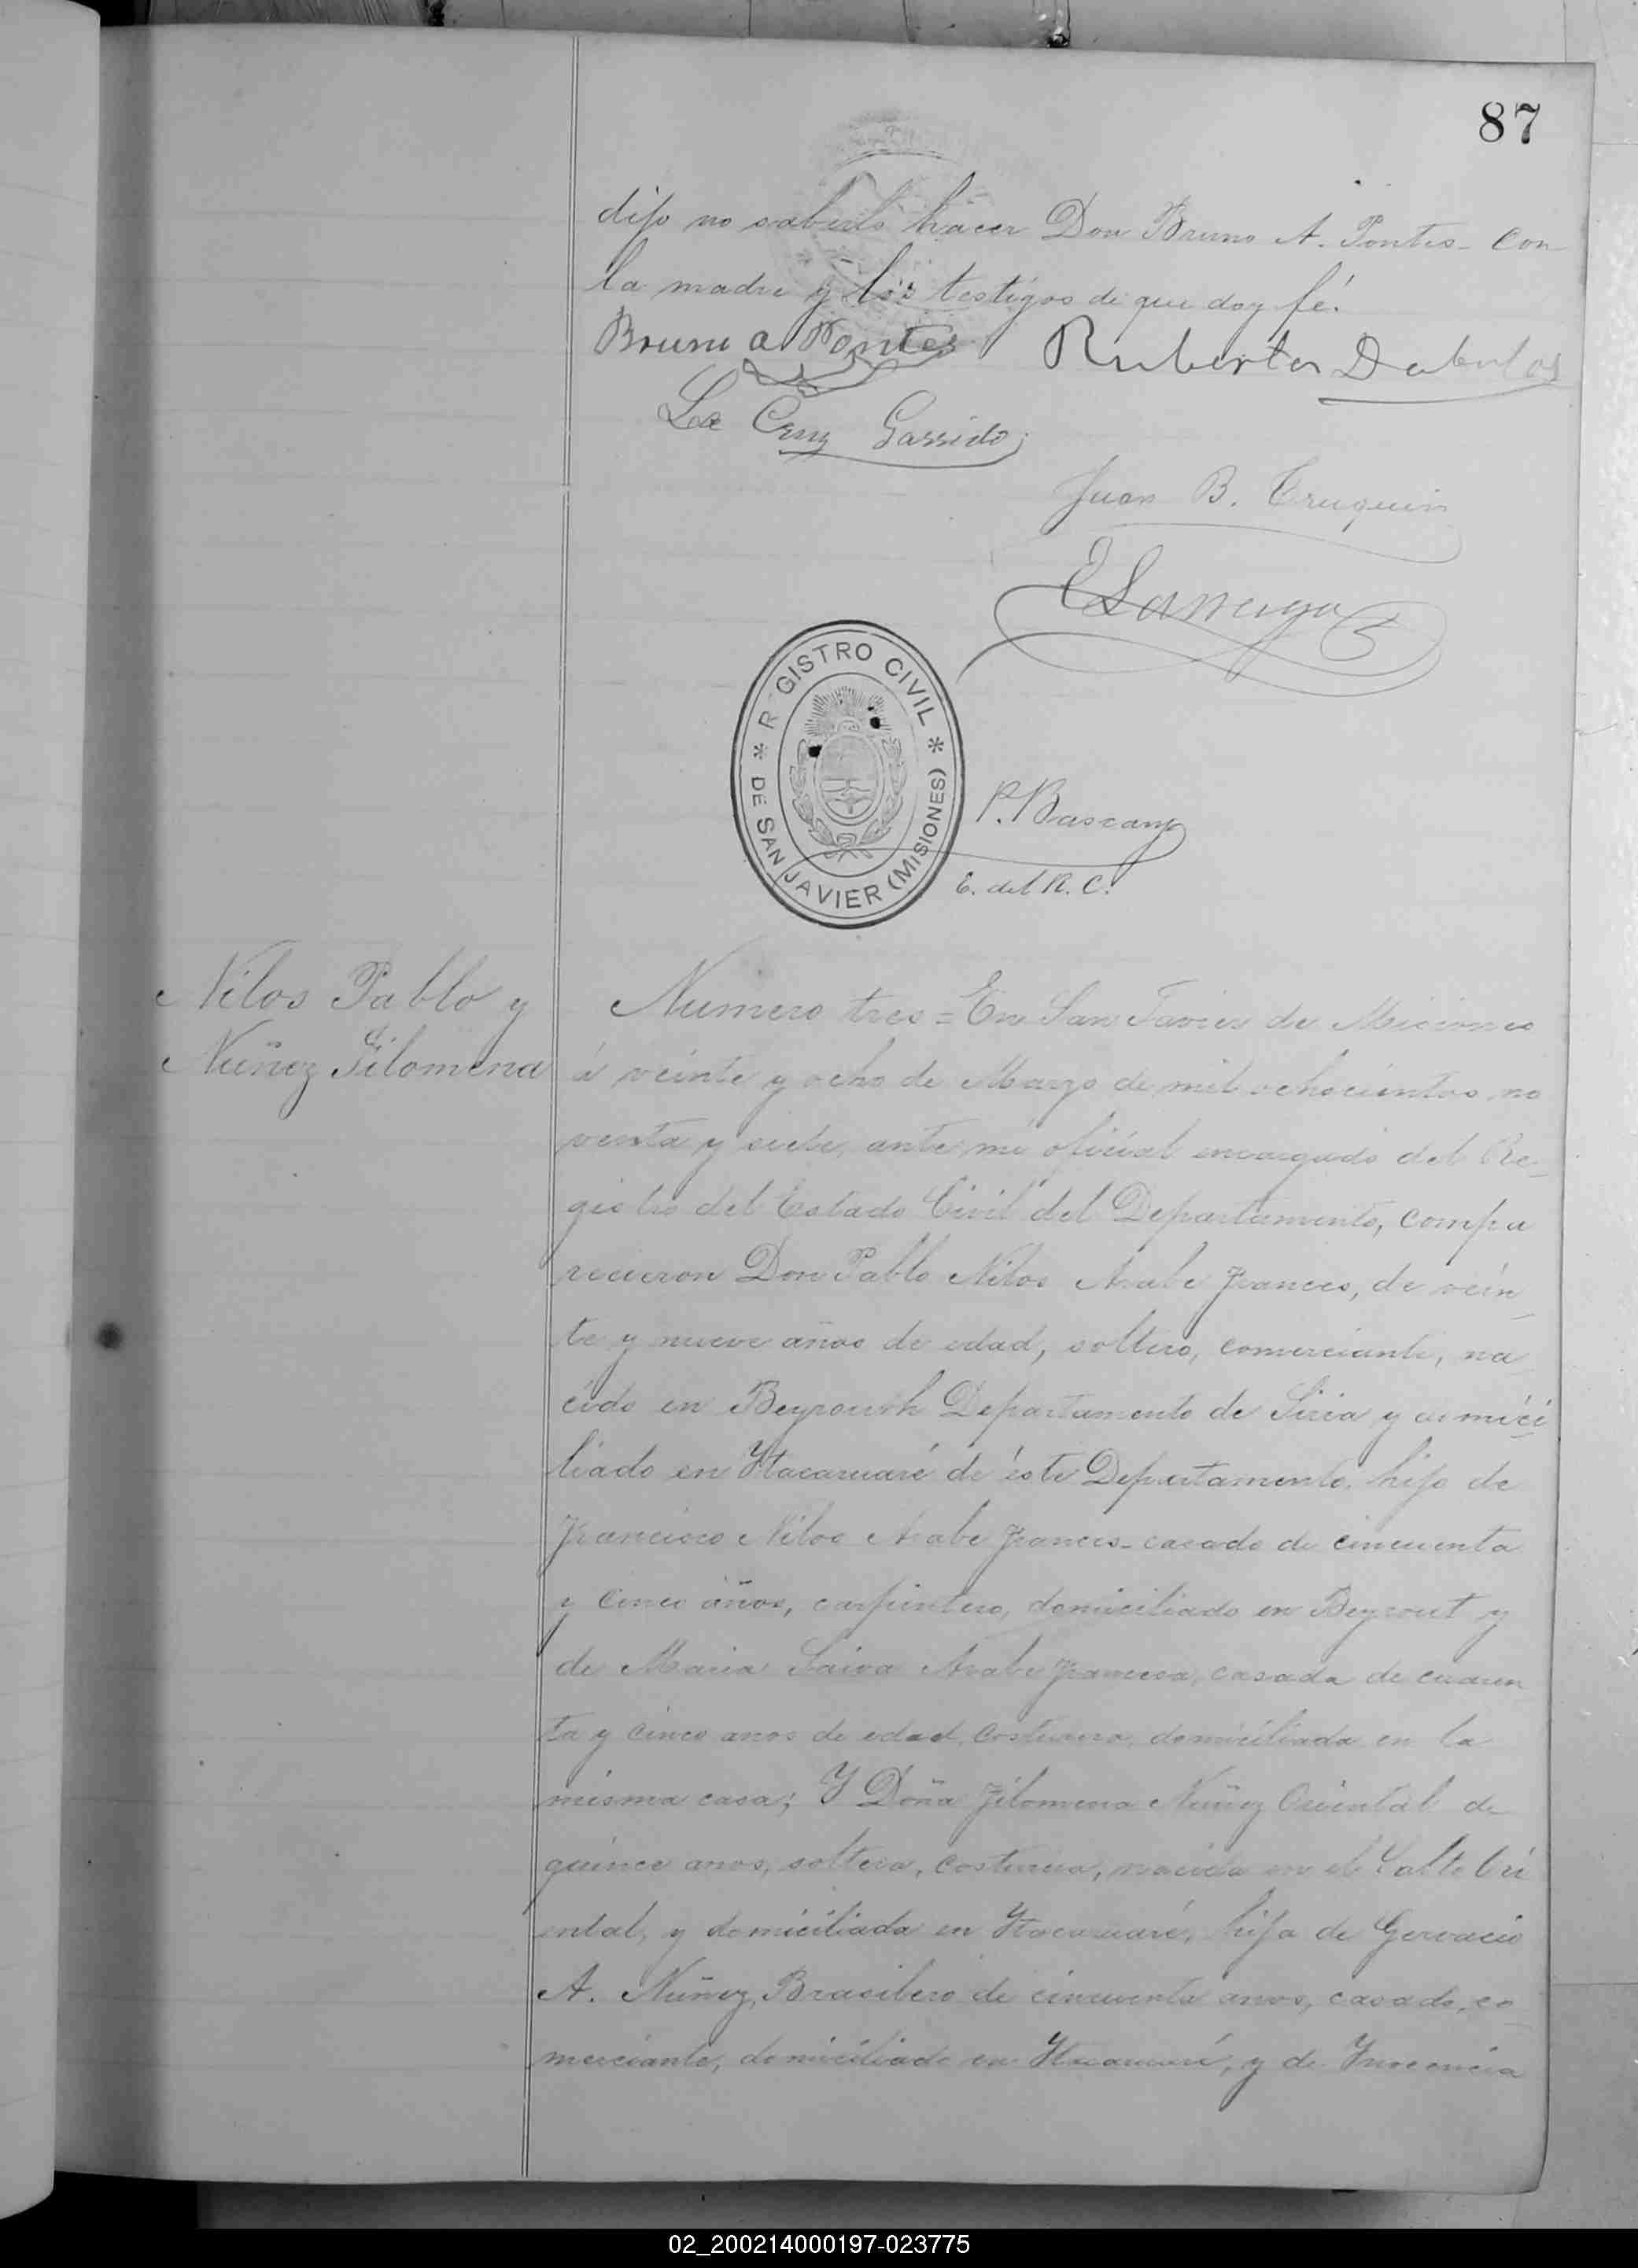 87
dijo no saberlo hacer Don Bruno A. Pontes - con
la madre y los testigos de que doy fé.
Bruno A Pontes Ruberto Dabalos
La Cruz Garrido
Juan B. Truquin
P. Bascary
E. del R. C.
R GISTRO CIVIL
DE SAN JAVIER (MISIONES)
Nilos Pablo y
Nuñez Filomena
Numero tres = En San Javier de Misiones
á veinte y ocho de Marzo de mil ochocientos no
venta y siete, ante mi oficial encargado del Re-
gistro del Estado Civil del Departamento, compa
recieron Don Pablo Nilos Arabe frances, de vein_
te y nueve años de edad, soltero, comerciante, na_
cido en Beyrouth Departamento de Siria y domici
liado en Ytacaruaré de éste Departamento, hijo de
Francisco Nilos Arabe frances - casado de cincuenta
y cinco años, carpintero, domiciliado en Beyrout y
de Maria Arabe francesa, casada de cuaren
ta y cinco anos de edad, costurera, domiciliada en la
misma casa; Y Doña Filomena Nuñez Oriental de
quince anos, soltera, costurera, nacida en el Salto Ori
ental, y domiciliada en Ytacaruaré, hija de Gervacio
A. Nuñez, Brasilero de cincuenta anos, casado, co_
merciante, domiciliado en Ytacaruaré, y de Ynocencia
02_200214000197-023775